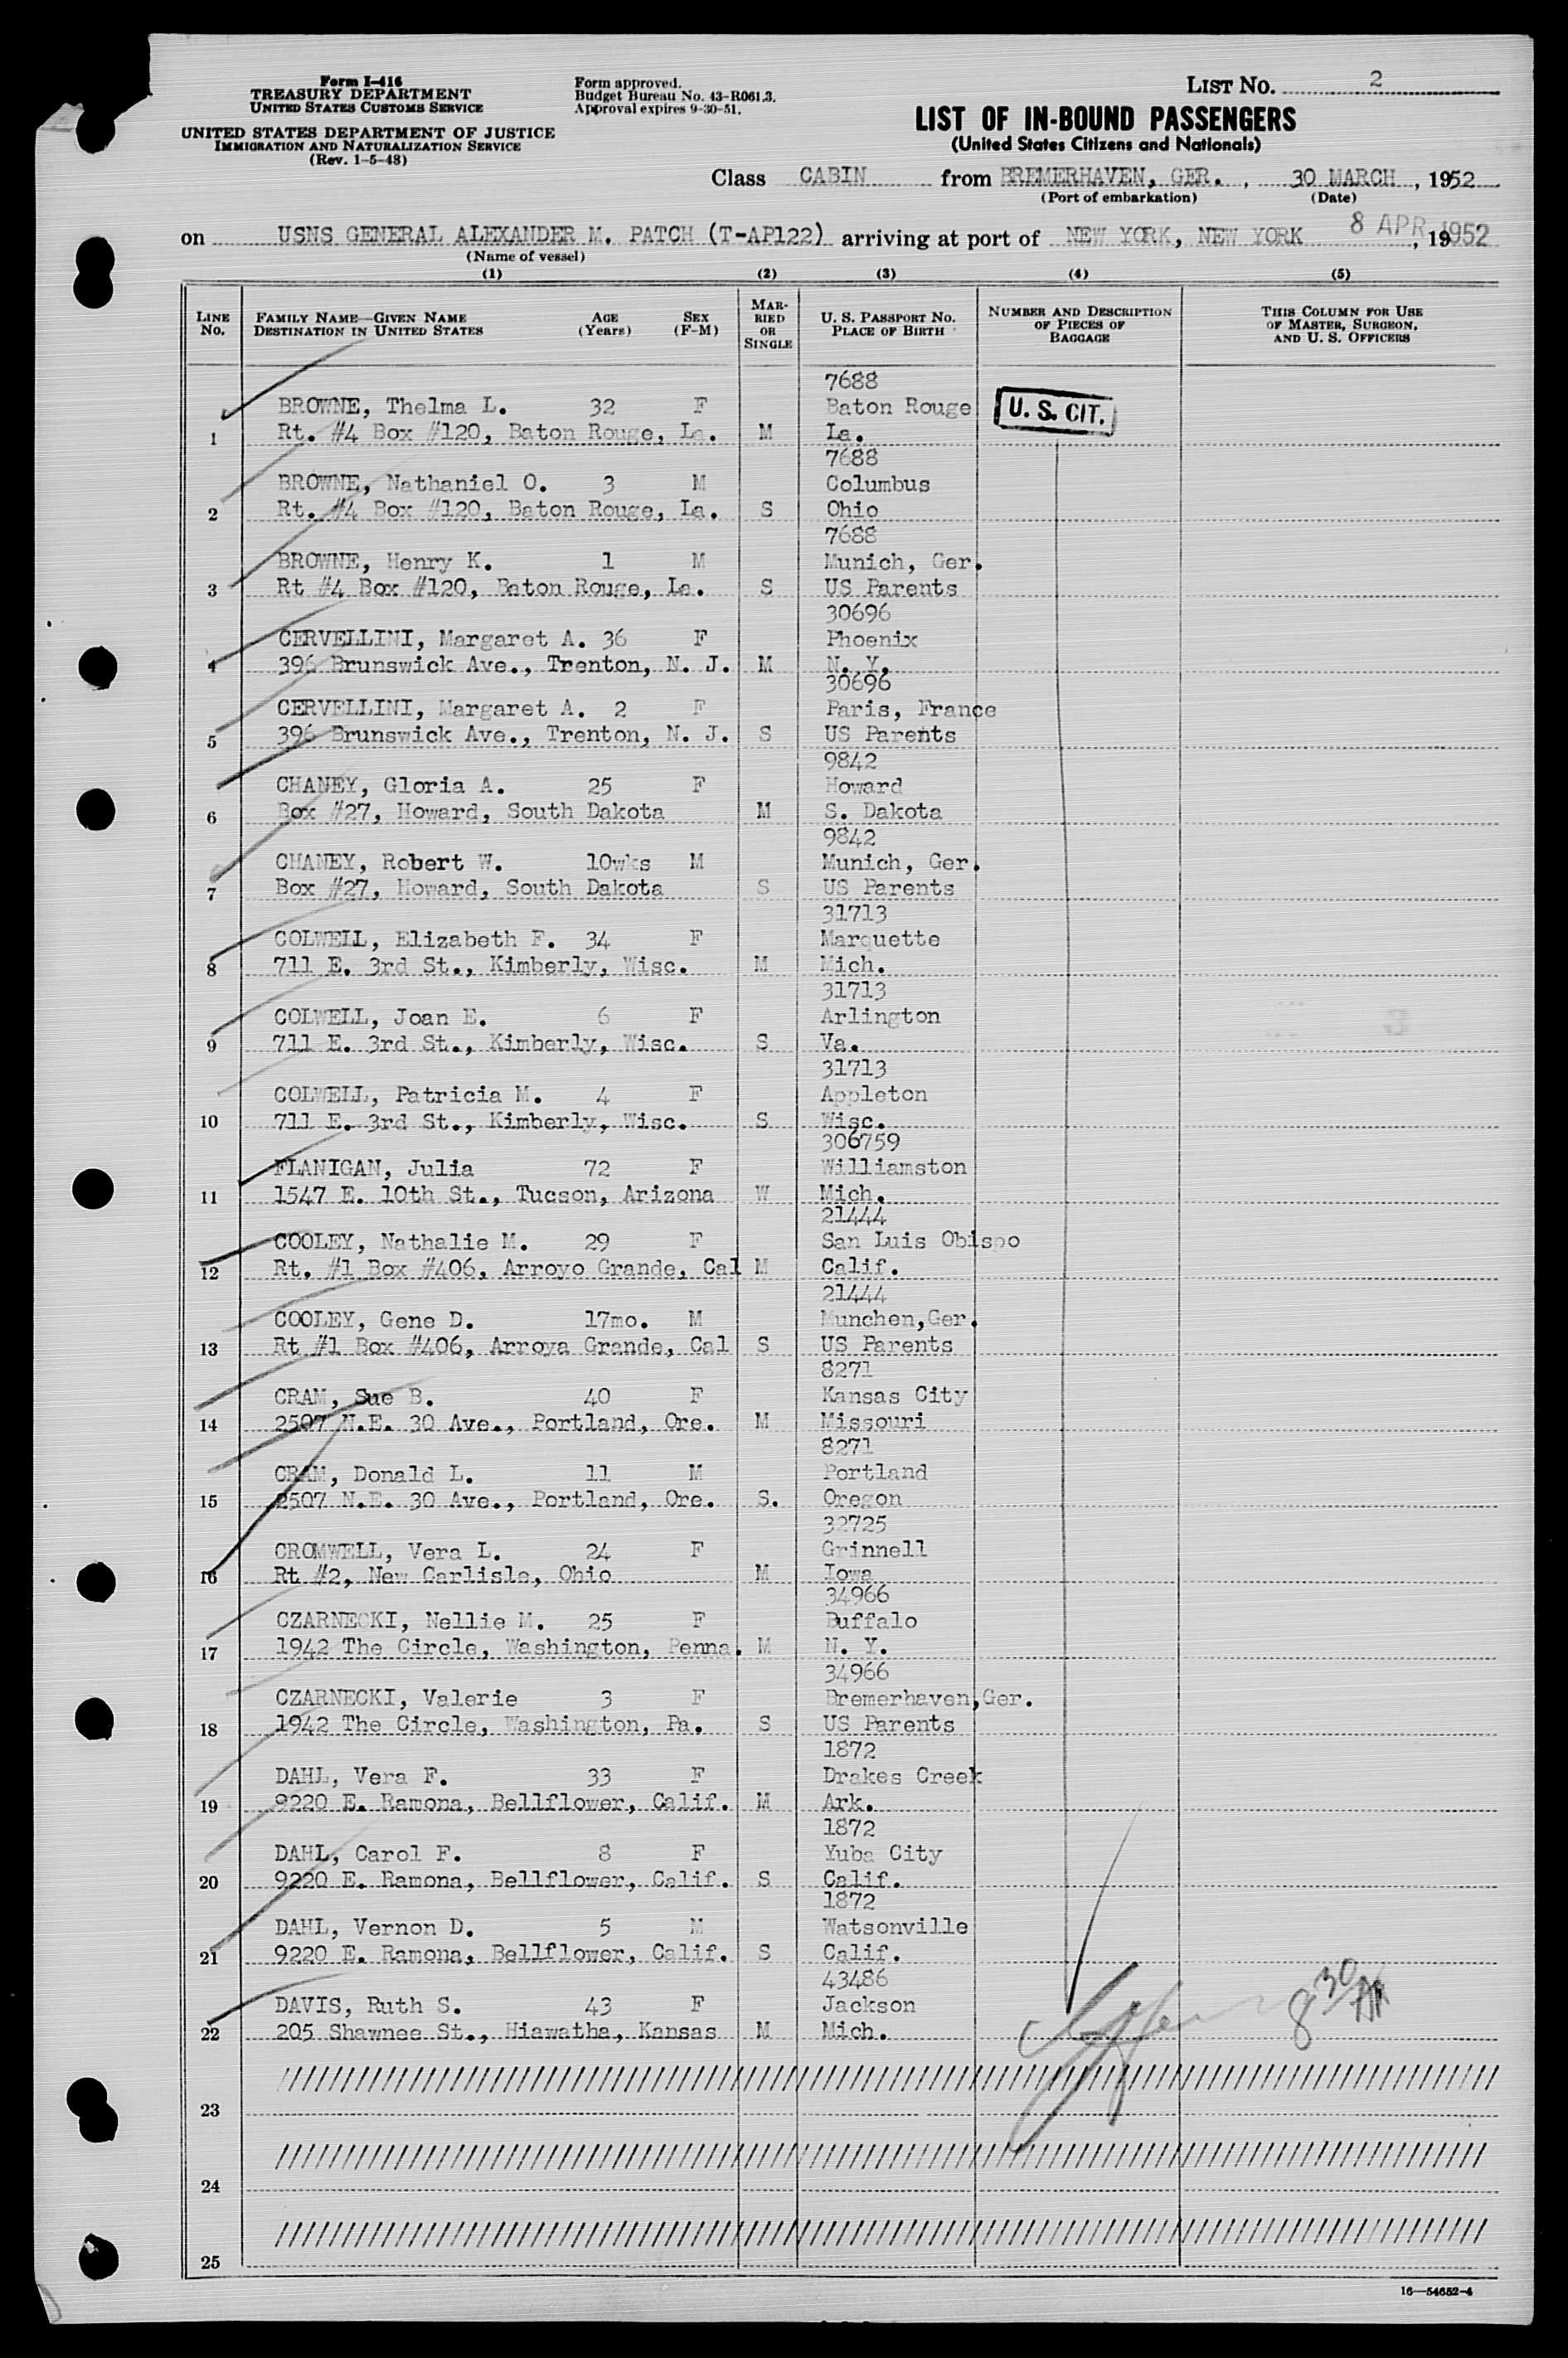 Form I-416
TREASURY DEPARTMENT
UNITED STATES CUSTOMS SERVICE
UNITED STATES DEPARTMENT OF JUSTICE
IMMIGRATION AND NATURALIZATION SERVICE
(Rev. 1-5-48)
Form approved.
Budget Bureau No. 43-R061.3.
Approval expires 9-30-51.
LIST NO. 2
LIST OF IN-BOUND PASSENGERS
(United States Citizens and Nationals)
Class CABIN from BREMERHAVEN, GER. , 30 MARCH , 1952
(Port of embarkation) (Date)
on USNS GENERAL ALEXANDER M. PATCH (T-AP122) arriving at port of NEW YORK, NEW YORK 8 APR 1952 , 19
(Name of vessel)
(1) (2) (3) (4) (5)
LINE NO. FAMILY NAME—GIVEN NAME DESTINATION IN UNITED STATES AGE (Years) SEX (F-M) MARRIED OR SINGLE U. S. PASSPORT NO. PLACE OF BIRTH NUMBER AND DESCRIPTION OF PIECES OF BAGGAGE THIS COLUMN FOR USE OF MASTER, SURGEON, AND U. S. OFFICERS
7688
BROWNE, Thelma L. 32 F Baton Rouge U. S. CIT.
1 Rt. #4 Box #120, Baton Rouge, La. M La.
7688
BROWNE, Nathaniel O. 3 M Columbus
2 Rt. #4 Box #120, Baton Rouge, La. S Ohio
7688
BROWNE, Henry K. 1 M Munich, Ger.
3 Rt #4 Box #120, Baton Rouge, La. S US Parents
30696
CERVELLINI, Margaret A. 36 F Phoenix
4 396 Brunswick Ave., Trenton, N. J. M N. Y.
30696
CERVELLINI, Margaret A. 2 F Paris, France
5 396 Brunswick Ave., Trenton, N. J. S US Parents
9842
CHANEY, Gloria A. 25 F Howard
6 Box #27, Howard, South Dakota M S. Dakota
9842
CHANEY, Robert W. 10wks M Munich, Ger.
7 Box #27, Howard, South Dakota S US Parents
31713
COLWELL, Elizabeth F. 34 F Marquette
8 711 E. 3rd St., Kimberly, Wisc. M Mich.
31713
COLWELL, Joan E. 6 F Arlington
9 711 E. 3rd St., Kimberly, Wisc. S Va.
31713
COLWELL, Patricia M. 4 F Appleton
10 711 E. 3rd St., Kimberly, Wisc. S Wisc.
306759
FLANIGAN, Julia 72 F Williamston
11 1547 E. 10th St., Tucson, Arizona W Mich.
21444
COOLEY, Nathalie M. 29 F San Luis Obispo
12 Rt. #1 Box #406, Arroyo Grande, Cal M Calif.
21444
COOLEY, Gene D. 17mo. M Munchen,Ger.
13 Rt #1 Box #406, Arroya Grande, Cal S US Parents
8271
CRAM, Sue B. 40 F Kansas City
14 2507 N.E. 30 Ave., Portland, Ore. M Missouri
8271
CRAM, Donald L. 11 M Portland
15 2507 N.E. 30 Ave., Portland, Ore. S. Oregon
32725
CROMWELL, Vera L. 24 F Grinnell
16 Rt #2, New Carlisle, Ohio M Iowa
34966
CZARNECKI, Nellie M. 25 F Buffalo
17 1942 The Circle, Washington, Penna. M N. Y.
34966
CZARNECKI, Valerie 3 F Bremerhaven,Ger.
18 1942 The Circle, Washington, Pa. S US Parents
1872
DAHL, Vera F. 33 F Drakes Creek
19 9220 E. Ramona, Bellflower, Calif. M Ark.
1872
DAHL, Carol F. 8 F Yuba City
20 9220 E. Ramona, Bellflower, Calif. S Calif.
1872
DAHL, Vernon D. 5 M Watsonville
21 9220 E. Ramona, Bellflower, Calif. S Calif.
43486
DAVIS, Ruth S. 43 F Jackson 8 30
22 205 Shawnee St., Hiawatha, Kansas M Mich.
23
24
25
16—54652-4